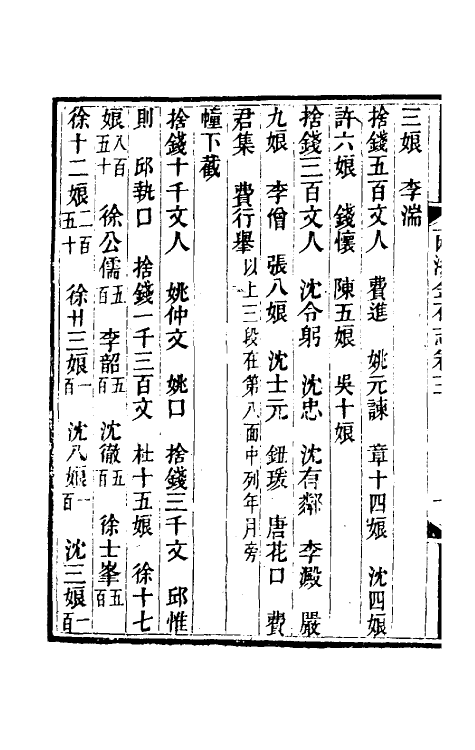 三娘　李湍
捨錢五百文人　費進　姚元諫　章十四娘　沈四娘
許六娘　錢懷　陳五娘　吳十娘
捨錢三百文人　沈令躬　沈忠　沈有鄰　李澱　嚴
九娘　李僧　張八娘　沈士元　鈕瑗　唐花口　費
君集　費行舉　以上三段在第八面中列年月旁
幢下截
捨錢十千文人　姚仲文　姚口　捨錢三千文　邱惟
則　邱執口　捨錢一千三百文　杜十五娘　徐十七
娘八百五十　徐公儒五百　李韶五百　沈徹五百　徐士峯五百
徐十二娘二百五十　徐廿三娘一百　沈八娘一百　沈三娘一百